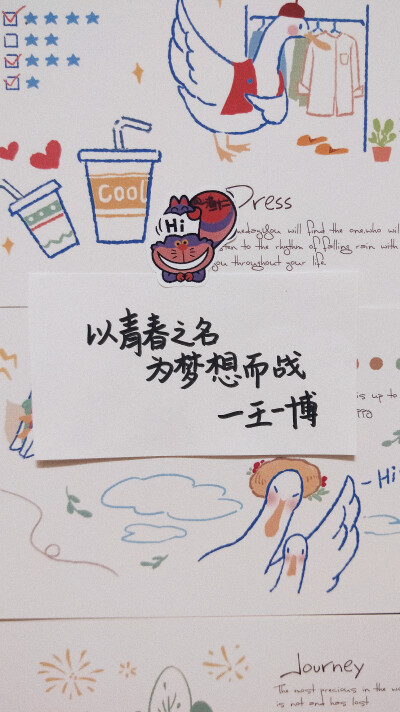 Cool
Hi
Dress
you will find the one,who will
to the rhythm of falling rain with
you throughout your life
以青春之名
为梦想而战
一王一博
is up to
-Hi
Journey
The most precious in the
and has lost